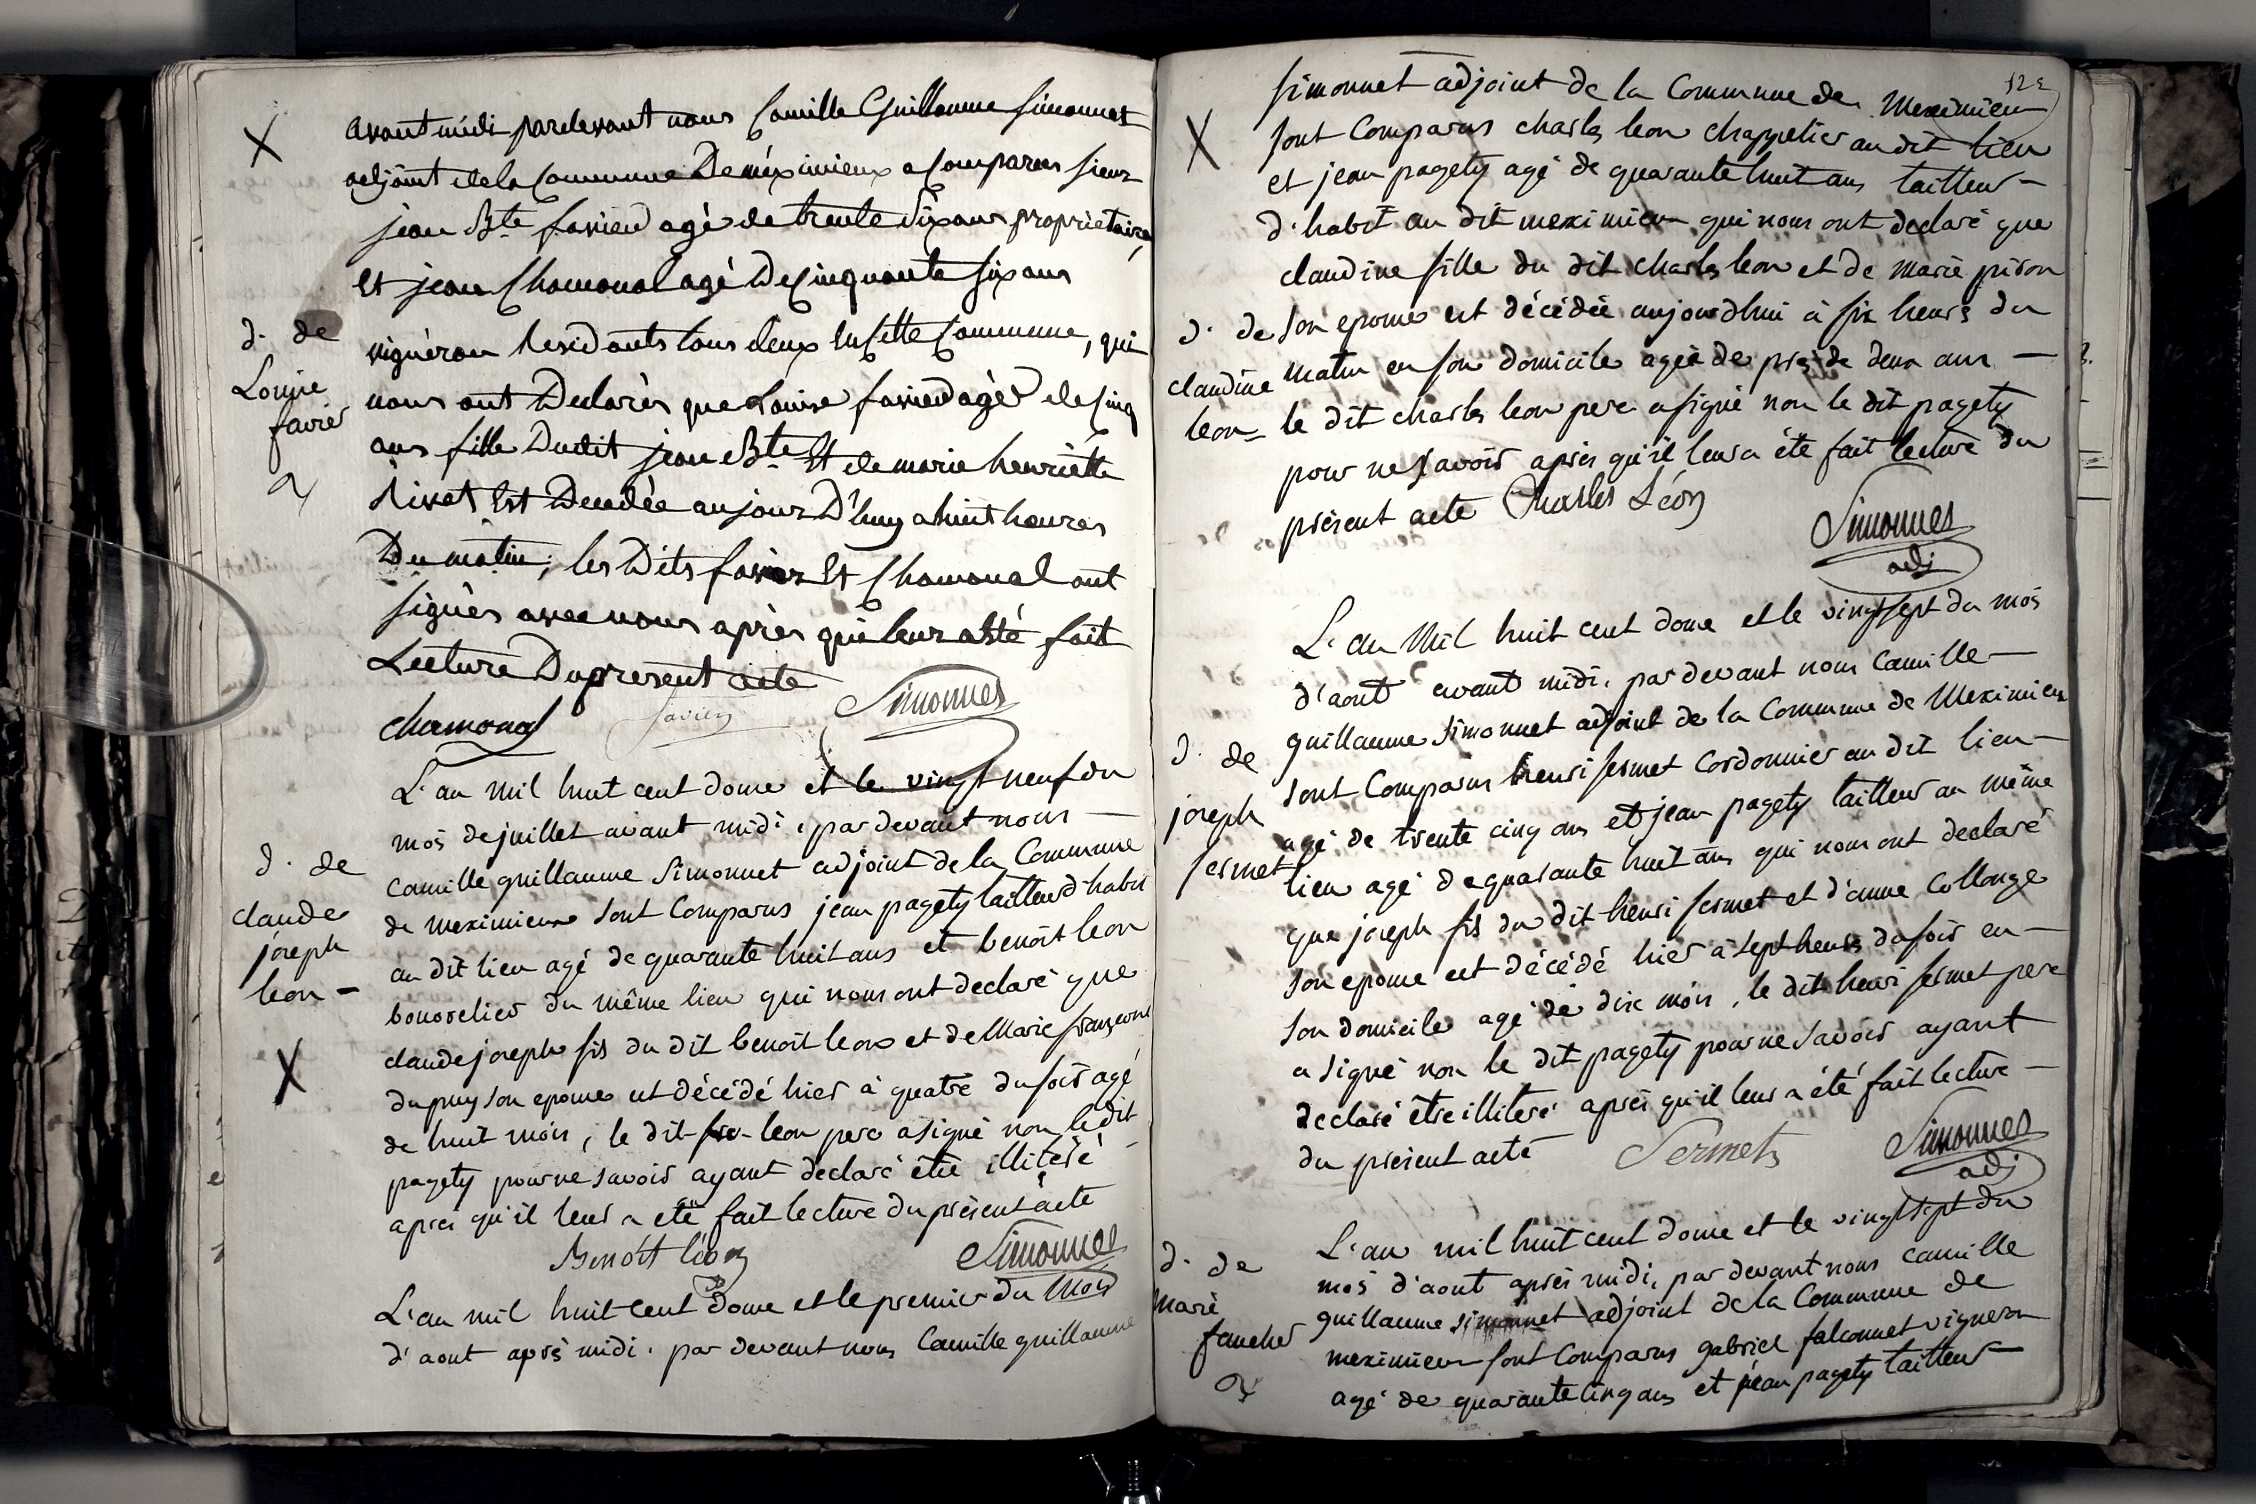 avant midi pardevant nous Camille Guillaume Simonnet
adjoint de la Commune De méximieux a Comparu Sieur
jean Bte favier agé de trente Six ans propriétaire,
Et jean Chamonal agé De Cinquante Six ans
vignéron Residants tous deux En Cette Commune, qui
d. de
Louise
favier
nous ont Declarés que Louise favier agée de Cinq
ans fille Dudit jean Bte Et de marie henriette
Rivet Est Decedée aujour D'huy a huit heures
Du matin; les Dits favier Et Chamonal ont
signés avec nous après que leur a Eté fait
Lecture Du present acte
chamonal favier Simonnet
L'an mil huit cent douze et le vingt neuf du
mois de juillet avant midi, par devant nous —
d. de
claude
joseph
leon -
camille guillaume Simonnet adjoint de la Commune
de meximieux sont Comparus jean pagety tailleur d'habit
au dit lieu agé de quarante huit ans et benoit leon
bourrelier du même lieu qui nous ont declaré que
claude joseph fils du dit benoit leon et de Marie françoise
dupuy son epouse est décédé hier à quatre du soir agé
de huit mois, le dit leon pere a signé non le dit
pagety pour ne savoir ayant declaré être illiteré
apres qu'il leur a eté fait lecture du présent acte
Benoit léon Simonnet
L'an mil huit cent douze et le premier du mois
d'aout après midi. par devant nous Camille guillaume
Simonnet adjoint de la Commune de Meximieux
sont Comparus charles leon chappelier au dit lieu
et jean pagety agé de quarante huit ans tailleur —
d'habit au dit meximieux qui nous ont declaré que
claudine fille du dit charles leon et de marie
d. de
claudine
leon -
son epouse est décédée aujourdhui à six heures du
matin en son domicile agée de près de deux ans —
le dit charles leon pere a signé non le dit pagety
pour ne savoir après qu'il leur a été fait lecture du
présent acte Charles Léon
Simonnet
adj
L'an Mil huit cent douze et le vingt sept du mois
d'aout avant midi, par devant nous Camille —
guillaume Simonnet adjoint de la Commune de Meximieux
d. de
joseph
sermet
sont Comparus henri sermet Cordonnier au dit lieu —
agé de trente cinq ans et jean pagety tailleur au même
lieu agé de quarante huit ans qui nous ont declaré
que joseph fils du dit henri sermet et d'anne Collonge
son epouse est décédé hier à sept heures du soir en —
son domicile agé de dix mois, le dit henri sermet pere
a signé non le dit pagety pour ne savoir ayant
declaré être illiteré après qu'il leur a été fait lecture —
du présent acte Sermet Simonnet
adj
L'an mil huit cent douze et le vingt sept du
mois d'aout après midi, par devant nous camille
d. de
Marie
guillaume simonnet adjoint de la Commune de
meximieux sont Comparus gabriel falconnet vigneron
agé de quarante cinq ans et jean pagety tailleur —